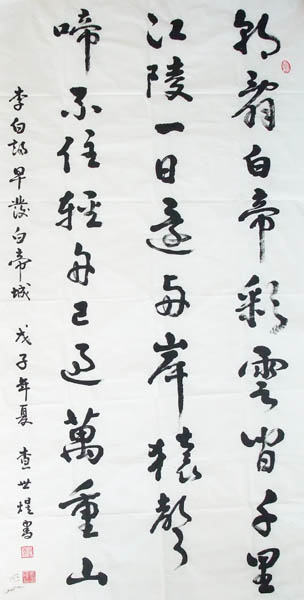 朝辭白帝彩雲間千里
江陵一日還兩岸猿聲
啼不住輕舟已過萬重山
李白詩早發白帝城 戊子年夏 查世書